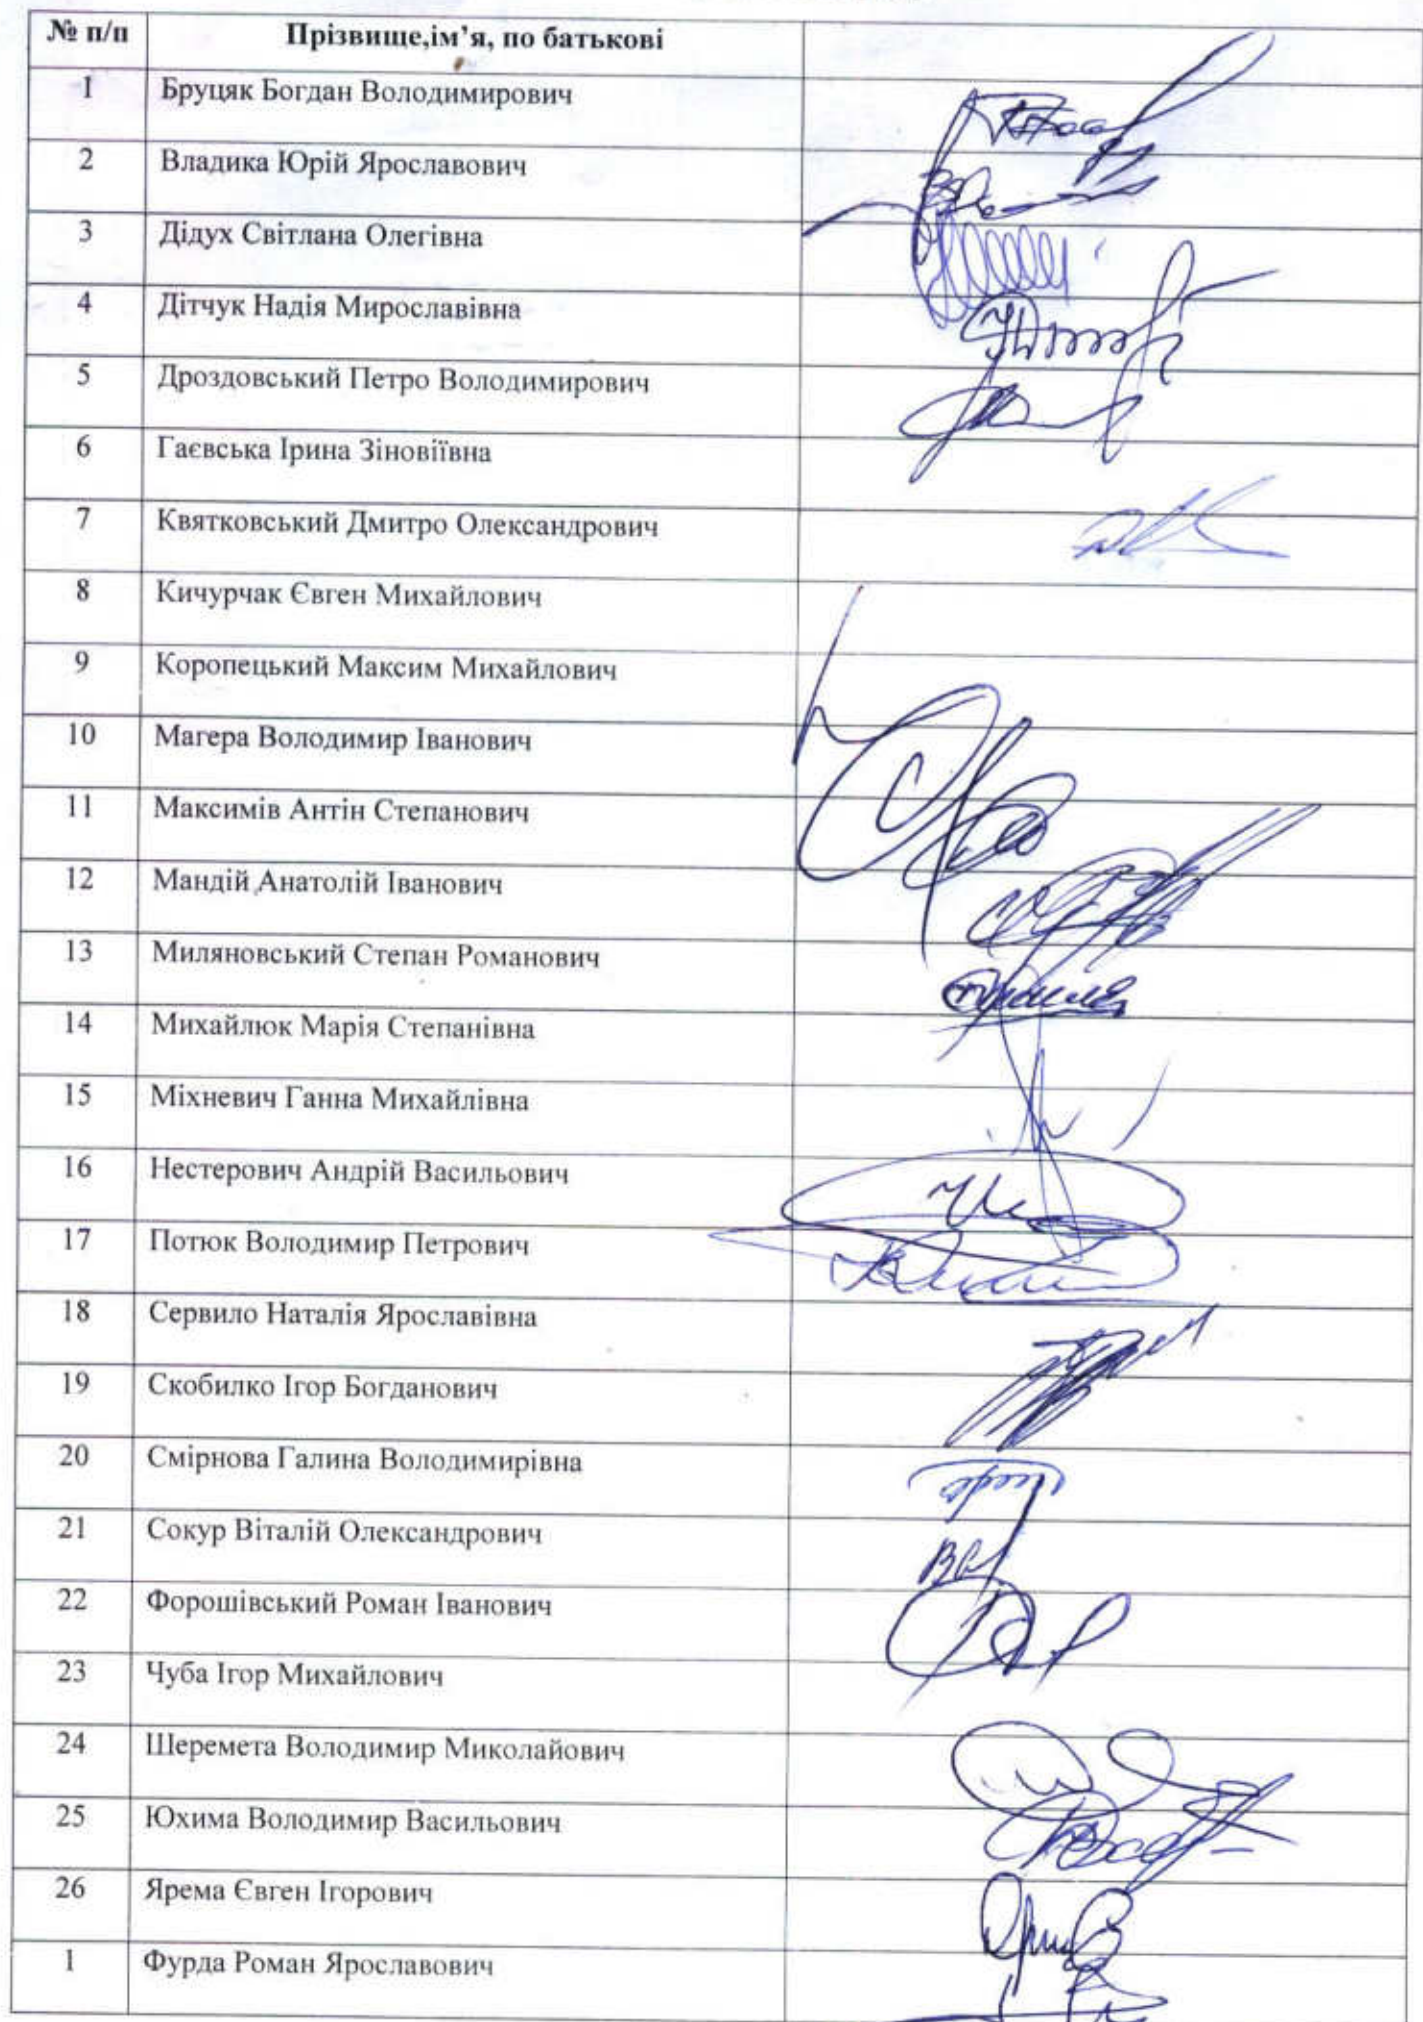 № п/п Прізвище,ім’я, по батькові
1 Бруцяк Богдан Володимирович
2 Владика Юрій Ярославович
3 Дідух Світлана Олегівна
4 Дітчук Надія Мирославівна
5 Дроздовський Петро Володимирович
6 Гаєвська Ірина Зіновіївна
7 Квятковський Дмитро Олександрович
8 Кичурчак Євген Михайлович
9 Коропецький Максим Михайлович
10 Магера Володимир Іванович
11 Максимів Антін Степанович
12 Мандій Анатолій Іванович
13 Миляновський Степан Романович
14 Михайлюк Марія Степанівна
15 Міхневич Ганна Михайлівна
16 Нестерович Андрій Васильович
17 Потюк Володимир Петрович
18 Сервило Наталія Ярославівна
19 Скобилко Ігор Богданович
20 Смірнова Галина Володимирівна
21 Сокур Віталій Олександрович
22 Форошівський Роман Іванович
23 Чуба Ігор Михайлович
24 Шеремета Володимир Миколайович
25 Юхима Володимир Васильович
26 Ярема Євген Ігорович
1 Фурда Роман Ярославович